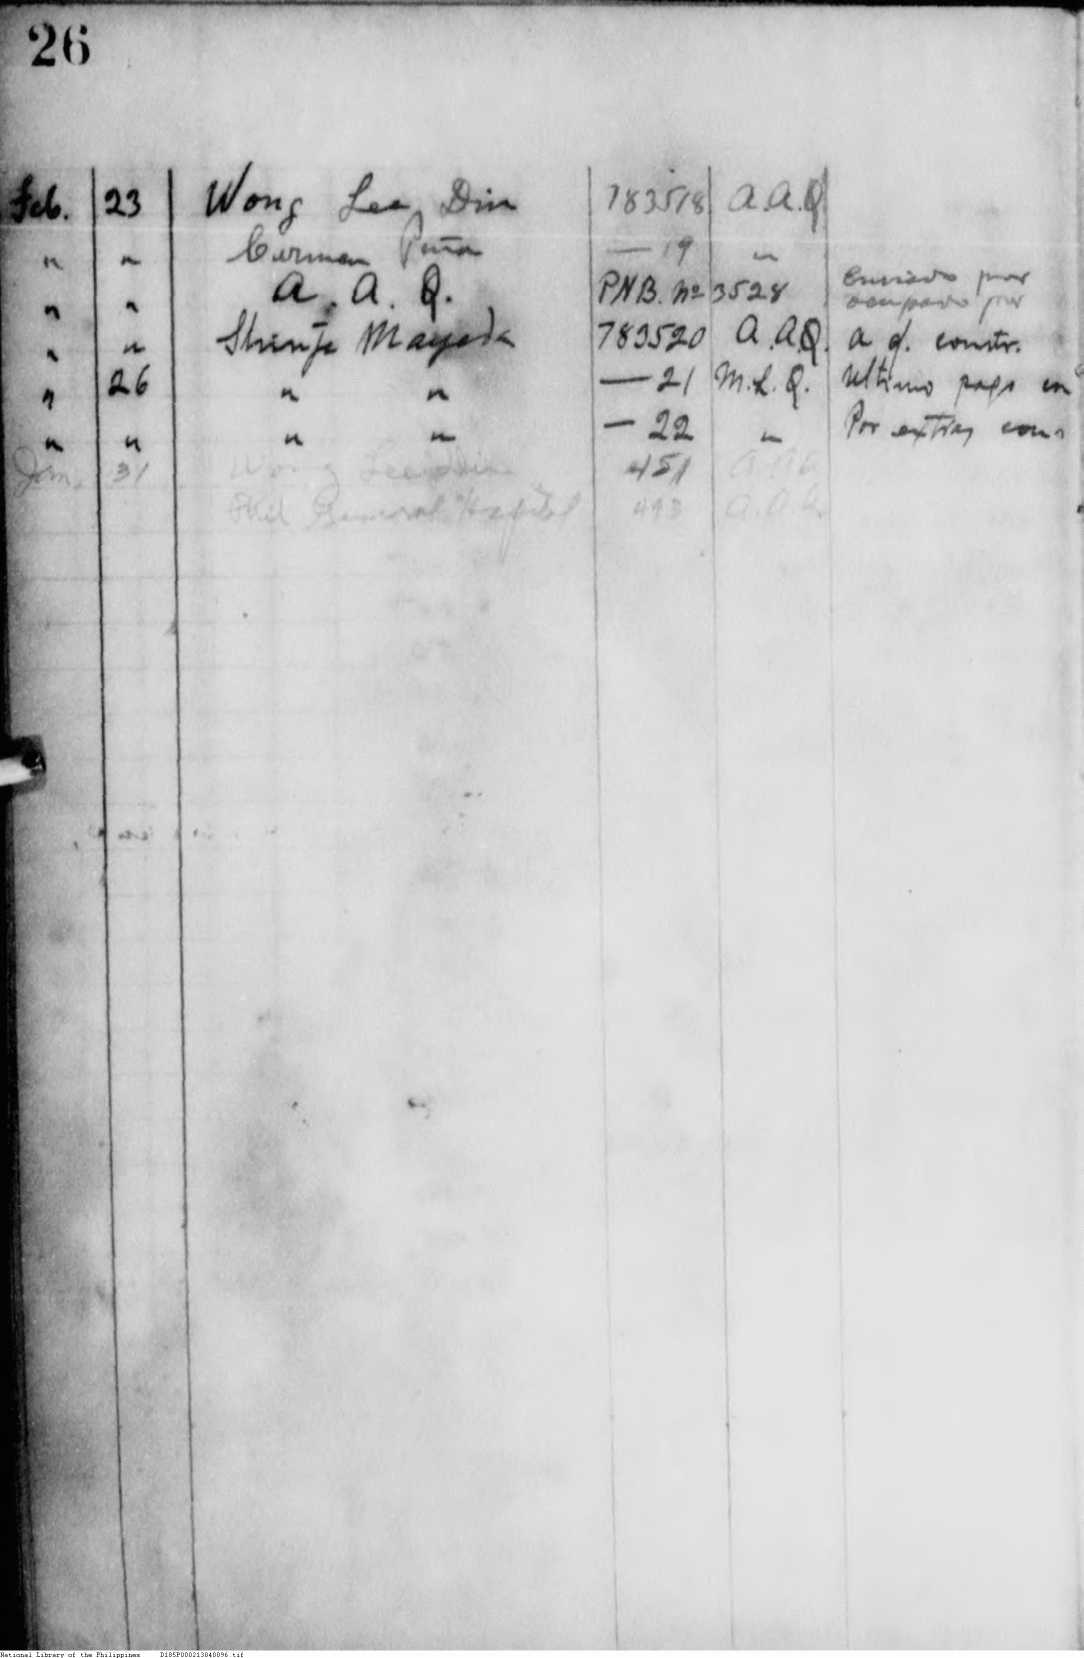 26
Feb. 23 Wong Lee Din 783518 A.A.Q
" " Carmen Peña — 19 "
" " A. A. Q. PNB. Nº 3528 Enviado por
por
" " Shinji Mayeda 783520 A.A.Q. a cf. constr.
" 26 " " — 21 M.L.Q. Ultimo pago en
" " " " — 22 " Por extras con
Jan. 31 Wong Lee Din 451 A.A.Q
General Hospital 493 A.A.Q.
National Library of the Philippines D185P000213040096.tif